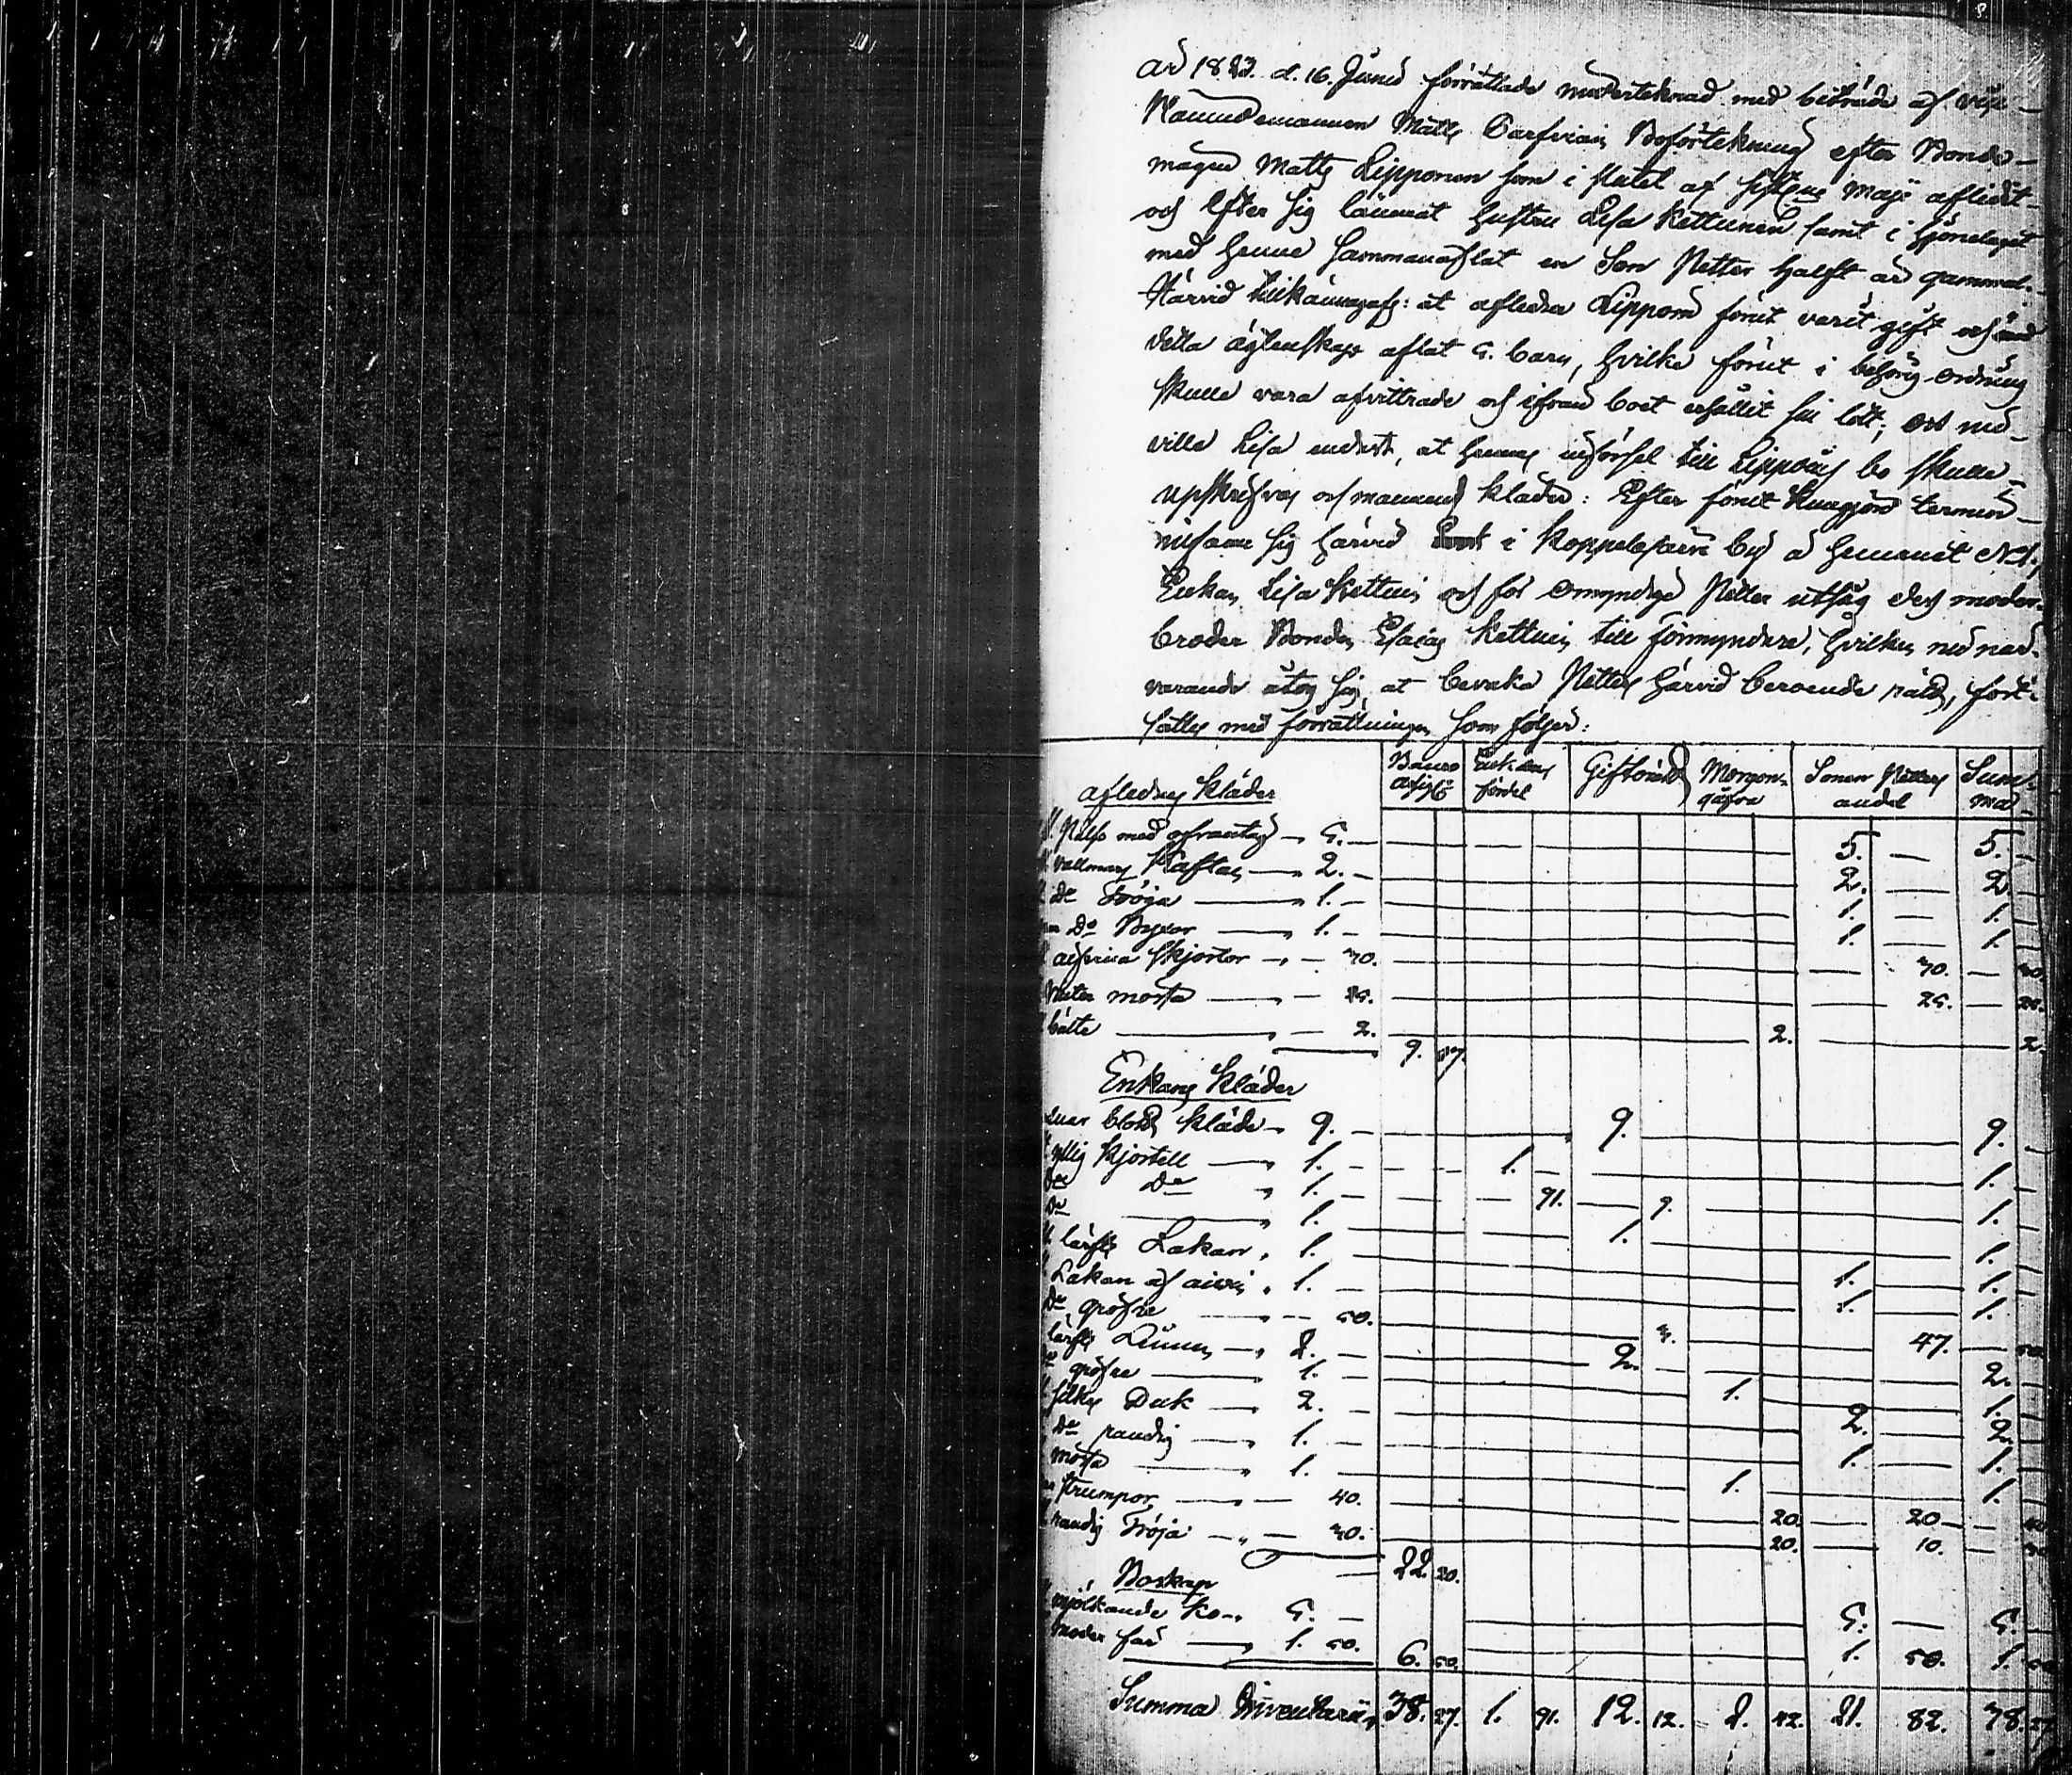 år 1823. d. 16. Junii förrättade underteknad med biträde af vice
Nämndemannen Matts Bouptekning efter Bonde-
mågen Matts Lipponen som i slutet af sistl. Maji aflidit
och efter sig lämnat hustru Lisa Kettunen samt i hjonelaget
med henne sammanaflat en Son Petter halft år gammal.
Härvid tillkännagafs: at afledne Lippoin förut varit gift och med
detta ägtenskap aflat 5. barn, hvilka förut i behörig ordning
skulle vara afvittrade och ifrån boet erhållit sin lott; och nu
ville Lisa endast, at hennes införsel till Lippoins bo skulle
upskrifvas och mannens kläder: Efter förut kungjord termin
infann sig härvid i Koppelojärvi by å hemanet N 1,
Enkan Lisa Kettuin och för omyndige Petter utsåg des moder-
broder Bonden Esaias Kettuin till förmyndare, hvilken nu när-
varande åtog sig, at bevaka Petters härvid beroende rätt, fort-
sattes med förrättningen som följer:
aflednes kläder Enkans fördel Giftorätt Morgon-gåfva Sonen Petters andel Summa
Päls med 5. — 5. — 5. —
vallmans Kaftan — 2. — 2. — 2. —
Do Tröja — 1. — 1. — 1.
Do Byxor — 1. — 1. — 1.
aivina skjortor — 30. 30. — 30.
mössa — 25. 25. — 25.
— 2. 2. 2.
9. 57.
Enkans kläder
kläde 9. — 9. 9. —
Kjortell — 1. — 1. — 1. —
Do Do 1. — 91. 9. 1. —
Do — 1. 1. 1. —
lärfts Lakan 1. 1. 1. —
Lakan af aivin 1. 1. 1.
Do gröfre — 50. 3. 47. 50.
lärfts Linne 2. — 2. 2. —
Do gröfre — 1. — 1. 1.
silkes Duk — 2. — 2. 2.
Do randig — 1. — 1. 1.
mössa — 1. 1. 1.
strumpor — 40. 20. 20 40
randig Tröja — 30. 20. 10. 30
22. 20.
Boskap
mjölkande ko 5. — 5. — 5. —
moder får — 1. 50. 6. 50. 1. 50. 1. 50
Summa Inventarium 38. 27. 1. 91. 12. 12. 2. 42. 21. 82. 38. 27